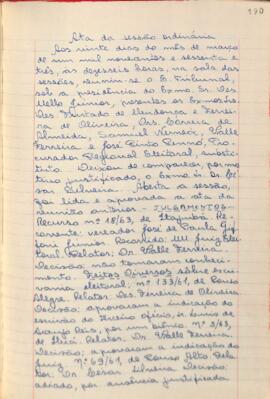 190
Ata da sessão ordinária
Aos vinte dias do mês de março
de um mil novecentos e sessenta e
três, às dezesseis horas, na sala das
sessões, reuniu-se o E. Tribunal,
sob a presidência do Exmo. Sr. Des.
Mello Júnior, presentes os Exmos. Srs.
Des. Furtado de Mendonça e Ferrei
ra de Oliveira, Drs. Corrêa de
Almeida, Samuel Valle
Ferreira e José Pinto Pro
curador Regional Eleitoral, substi
tuto. Deixou de comparecer, por mo
tivo justificado, o Exmo. Sr. Dr. Cé
sar Silveira. Aberta a sessão,
foi lida e aprovada a ata da
reunião anterior. - JULGAMENTOS -
Recurso nº 18/63, de Itajubá. Re
corrente: vereador José de Paula
Júnior. Recorrido: MM Juiz Elei
toral. Relator: Dr. Valle Ferreira.
Decisão: não tomaram conheci
mento. Feitos Diversos sôbre escri
vania eleitoral, nº 133/61, de Pouso
Alegre. Relator: Des. Ferreira de Oliveira
Decisão: aprovaram a indicação do
escrivão do terceiro ofício, sr. Luiz de
Araujo por um biênio. Nº 3/63,
de Relator: Dr. Valle Ferreira.
Decisão: aprovaram a indicação do
Juiz. Nº 69/61, de Pouso Alto. Rela
tor: Dr. César Silveira. Decisão:
adiado, por ausência justificada